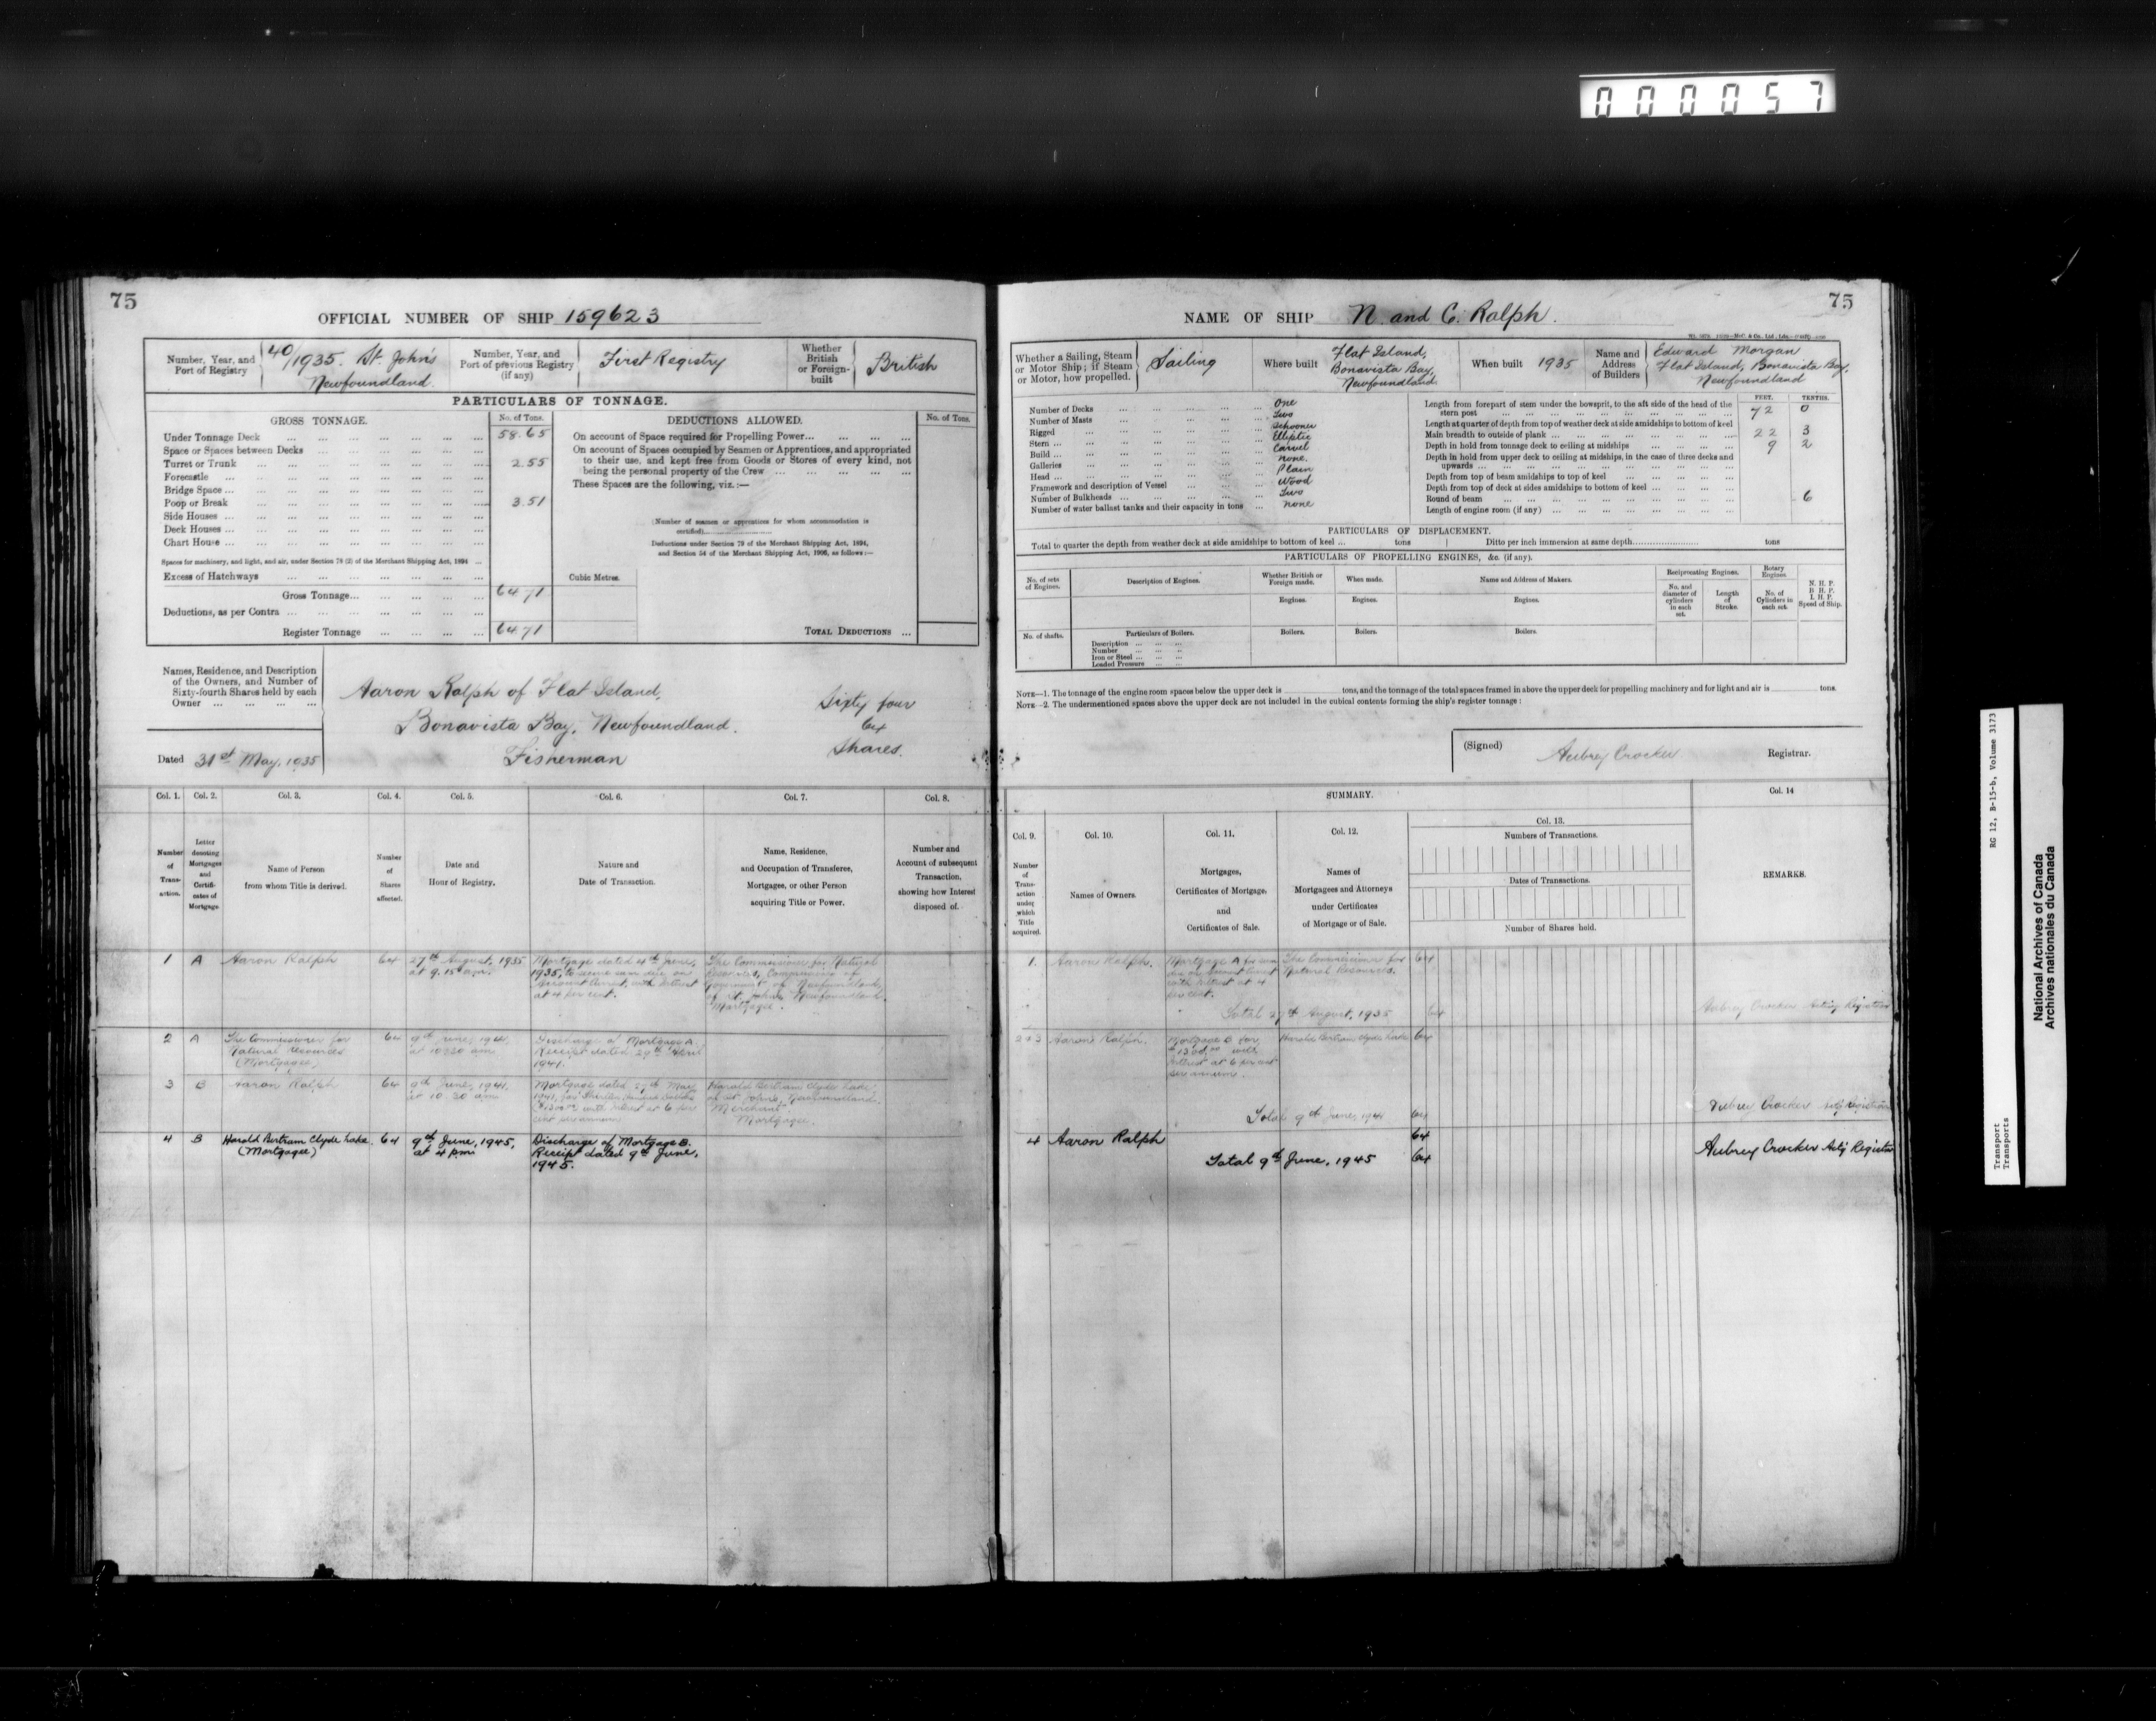 000057
75
OFFICIAL NUMBER OF SHIP 159623
Number, Year, and Port of Registry
40/1935. St. John's
Newfoundland.
Number, Year, and Port of previous Registry (if any)
First Registry
Whether British or Foreign-built
British
PARTICULARS OF TONNAGE.
GROSS TONNAGE.
No. of Tons.
Under Tonnage Deck ... 58.65
Space or Spaces between Decks ...
Turret or Trunk ... 2.55
Forecastle ...
Bridge Space ...
Poop or Break ... 3.51
Side Houses ...
Deck Houses ...
Chart House ...
Spaces for machinery, and light, and air, under Section 78 (2) of the Merchant Shipping Act, 1894 ...
Excess of Hatchways ...
Gross Tonnage... 64.71
Deductions, as per Contra ...
Register Tonnage ... 64.71
DEDUCTIONS ALLOWED.
No. of Tons.
On account of Space required for Propelling Power...
On account of Spaces occupied by Seamen or Apprentices, and appropriated
to their use, and kept free from Goods or Stores of every kind, not
being the personal property of the Crew ...
These Spaces are the following, viz.:—
(Number of seamen or apprentices for whom accommodation is
certified)
Deductions under Section 79 of the Merchant Shipping Act, 1894,
and Section 54 of the Merchant Shipping Act, 1906, as follows:—
Cubic Metres.
TOTAL DEDUCTIONS ...
Names, Residence, and Description
of the Owners, and Number of
Sixty-fourth Shares held by each
Owner ...
Aaron Ralph of Flat Island,
Bonavista Bay, Newfoundland.
Fisherman
Sixty four
64
Shares.
Dated 31st May, 1935
Col. 1. Col. 2. Col. 3. Col. 4. Col. 5. Col. 6. Col. 7. Col. 8.
Number of Transaction.
Letter denoting Mortgages and Certificates of Mortgage.
Name of Person
from whom Title is derived.
Number of Shares affected.
Date and
Hour of Registry.
Nature and
Date of Transaction.
Name, Residence,
and Occupation of Transferee,
Mortgagee, or other Person
acquiring Title or Power.
Number and
Account of subsequent
Transaction,
showing how Interest
disposed of.
1 A Aaron Ralph 64
27th August, 1935
at 9.15 a.m.
Mortgage dated 4th June,
1935, to secure sum due on
Account Current, with Interest
at 4 per cent.
The Commissioner for Natural
Resources, Commission of
Government of Newfoundland,
of St. John's, Newfoundland.
Mortgagee.
2 A The Commissioner for
Natural Resources
(Mortgagee)
64
9th June, 1941,
at 10.30 am
Discharge of Mortgage A.
Receipt dated 29th April
1941.
3 B Aaron Ralph 64
9th June, 1941,
at 10.30 am
Mortgage dated 27th May
1941, for Thirteen hundred dollars
($1300.00) with Interest at 6 per
cent per annum.
Harold Bertram Clyde Lake,
of St. John's, Newfoundland.
Merchant
Mortgagee.
4 B Harold Bertram Clyde Lake.
(Mortgagee)
64
9th June, 1945,
at 4 pm.
Discharge of Mortgage B.
Receipt dated 9th June,
1945.
75
NAME OF SHIP N. and C. Ralph.
Whether a Sailing, Steam
or Motor Ship; if Steam
or Motor, how propelled.
Sailing
Where built
Flat Island,
Bonavista Bay,
Newfoundland.
When built 1935
Name and Address of Builders
Edward Morgan
Flat Island, Bonavista Bay,
Newfoundland
Number of Decks ... One
Number of Masts ... Two
Rigged ... Schooner
Stern ... Elliptic
Build ... Carvel
Galleries ... none.
Head ... Plain
Framework and description of Vessel ... Wood
Number of Bulkheads ... Two
Number of water ballast tanks and their capacity in tons ... none
FEET. TENTHS.
Length from forepart of stem under the bowsprit, to the aft side of the head of the
stern post ... 72 0
Length at quarter of depth from top of weather deck at side amidships to bottom of keel
Main breadth to outside of plank ... 22 3
Depth in hold from tonnage deck to ceiling at midships ... 9 2
Depth in hold from upper deck to ceiling at midships, in the case of three decks and
upwards ...
Depth from top of beam amidships to top of keel ...
Depth from top of deck at sides amidships to bottom of keel ...
Round of beam ... 6
Length of engine room (if any) ...
PARTICULARS OF DISPLACEMENT.
Total to quarter the depth from weather deck at side amidships to bottom of keel ... tons
Ditto per inch immersion at same depth tons
PARTICULARS OF PROPELLING ENGINES, &c. (if any).
No. of sets of Engines.
Description of Engines.
Whether British or Foreign made.
When made.
Name and Address of Makers.
Reciprocating Engines.
Rotary Engines.
No. and diameter of cylinders in each set.
Length of Stroke.
No. of Cylinders in each set.
N. H. P.
B. H. P.
I. H. P.
Speed of Ship.
Engines. Engines. Engines.
No. of shafts.
Particulars of Boilers.
Description ...
Number ...
Iron or Steel ...
Loaded Pressure ...
Boilers. Boilers. Boilers.
NOTE—1. The tonnage of the engine room spaces below the upper deck is tons, and the tonnage of the total spaces framed in above the upper deck for propelling machinery and for light and air is tons.
NOTE—2. The undermentioned spaces above the upper deck are not included in the cubical contents forming the ship's register tonnage:
(Signed) Aubrey Crocker Registrar.
SUMMARY.
Col. 9. Col. 10. Col. 11. Col. 12. Col. 13. Col. 14
Number of Transaction under which Title acquired.
Names of Owners.
Mortgages,
Certificates of Mortgage,
and
Certificates of Sale.
Names of
Mortgagees and Attorneys
under Certificates
of Mortgage or of Sale.
Numbers of Transactions.
Dates of Transactions.
Number of Shares held.
REMARKS.
1. Aaron Ralph.
Mortgage A for sum
due on account Current
with Interest at 4
per cent.
The Commissioner for
Natural Resources.
64
Total 27th August, 1935 64
Aubrey Crocker Acting Registrar
2 & 3 Aaron Ralph.
Mortgage B for
$1300.00 with
Interest at 6 per cent
per annum.
Harold Bertram Clyde Lake 64
Total 9th June, 1941 64
Aubrey Crocker Actg Registrar
4 Aaron Ralph 64
Total 9th June, 1945 64
Aubrey Crocker Actg Registrar
RG 12, B-15-b, Volume 3173
Transport
Transports
National Archives of Canada
Archives nationales du Canada